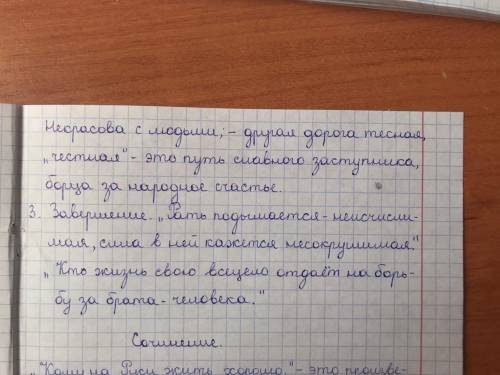 Некрасова с людьми; - другая дорога тесная,
„честная" - это путь славного заступника,
борца за народное счастье.
3. Завершение. „Рать подымается - неисчисли-
мая, сила в ней кажется несокрушимая."
„Кто жизнь свою всецело отдаёт на борь-
бу за брата - человека."
Сочинение.
„Кому на Руси жить хорошо." - это произве-